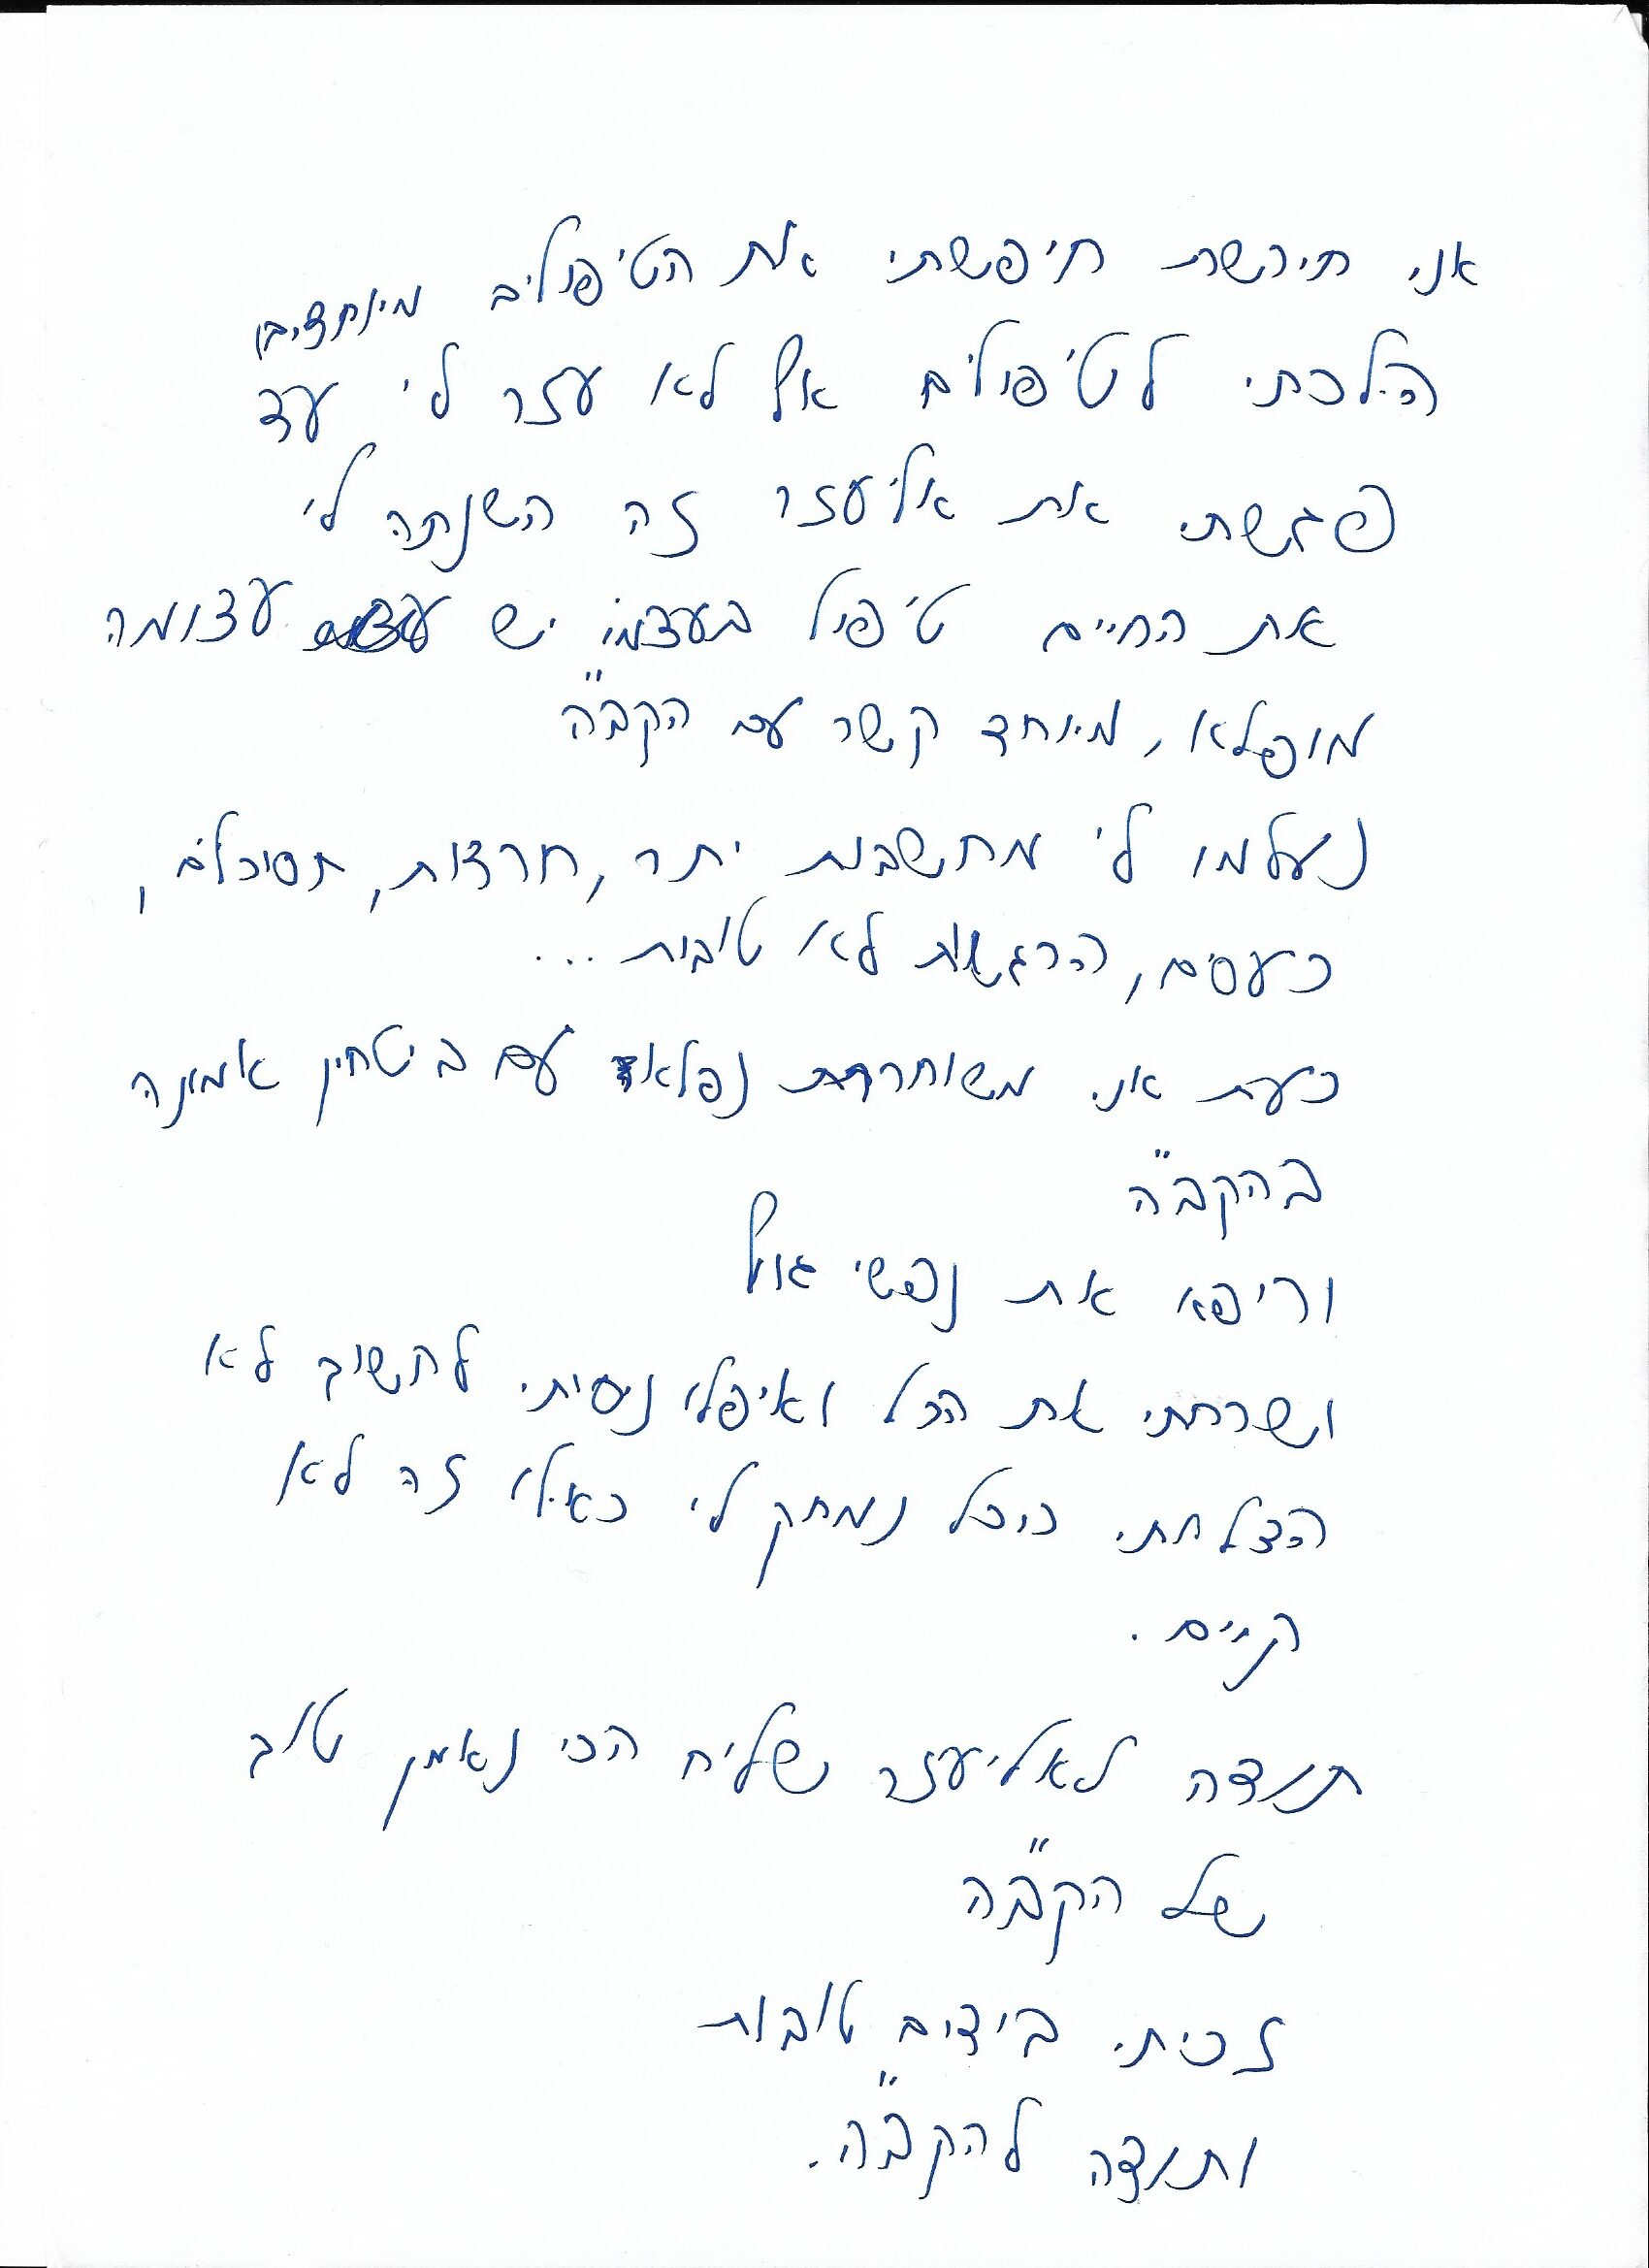 אני חירשת חיפשתי את הטיפולים מיוחדים
הלכתי לטיפולים אך לא עזר לי עד
פגשתי את אליעזר זה השנתה לי
את החיים טיפול בעצמי יש עצומה
מופלא, מיוחד קשר עם הקב"ה
נעלמו לי מחשבות יתר, חרדות, תסיכולים,
כעסים, הרגשות לא טובות...
כעת אני משוחררת נפלא עם ביטחון אמונה
בהקב"ה
וריפא את נפשי גוף
ושרתתי את הכל ואיפלו ניסיתי לחשוב לא
הצלחתי כיכל נמחק לי כאילו זה לא
קיים.
תודה לאליעזר שליח הכי נאמן טוב
של הקב"ה
זכיתי בידים טובות
ותודה להקב"ה.